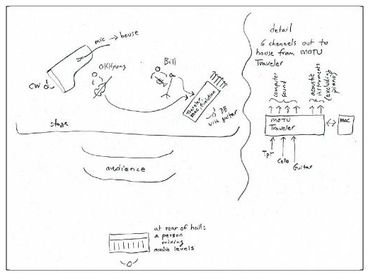 mic → house
OKHyung
Bill
CW
MOTU Traveler
via guitar
stage
audience
at rear of hall:
a person
mixing
audio levels
detail
6 channels out to
house from MOTU
Traveler
computer
sound
acoustic
instruments
(excluding
piano)
MOTU
Traveler
mac
Tpt
Cello
Guitar